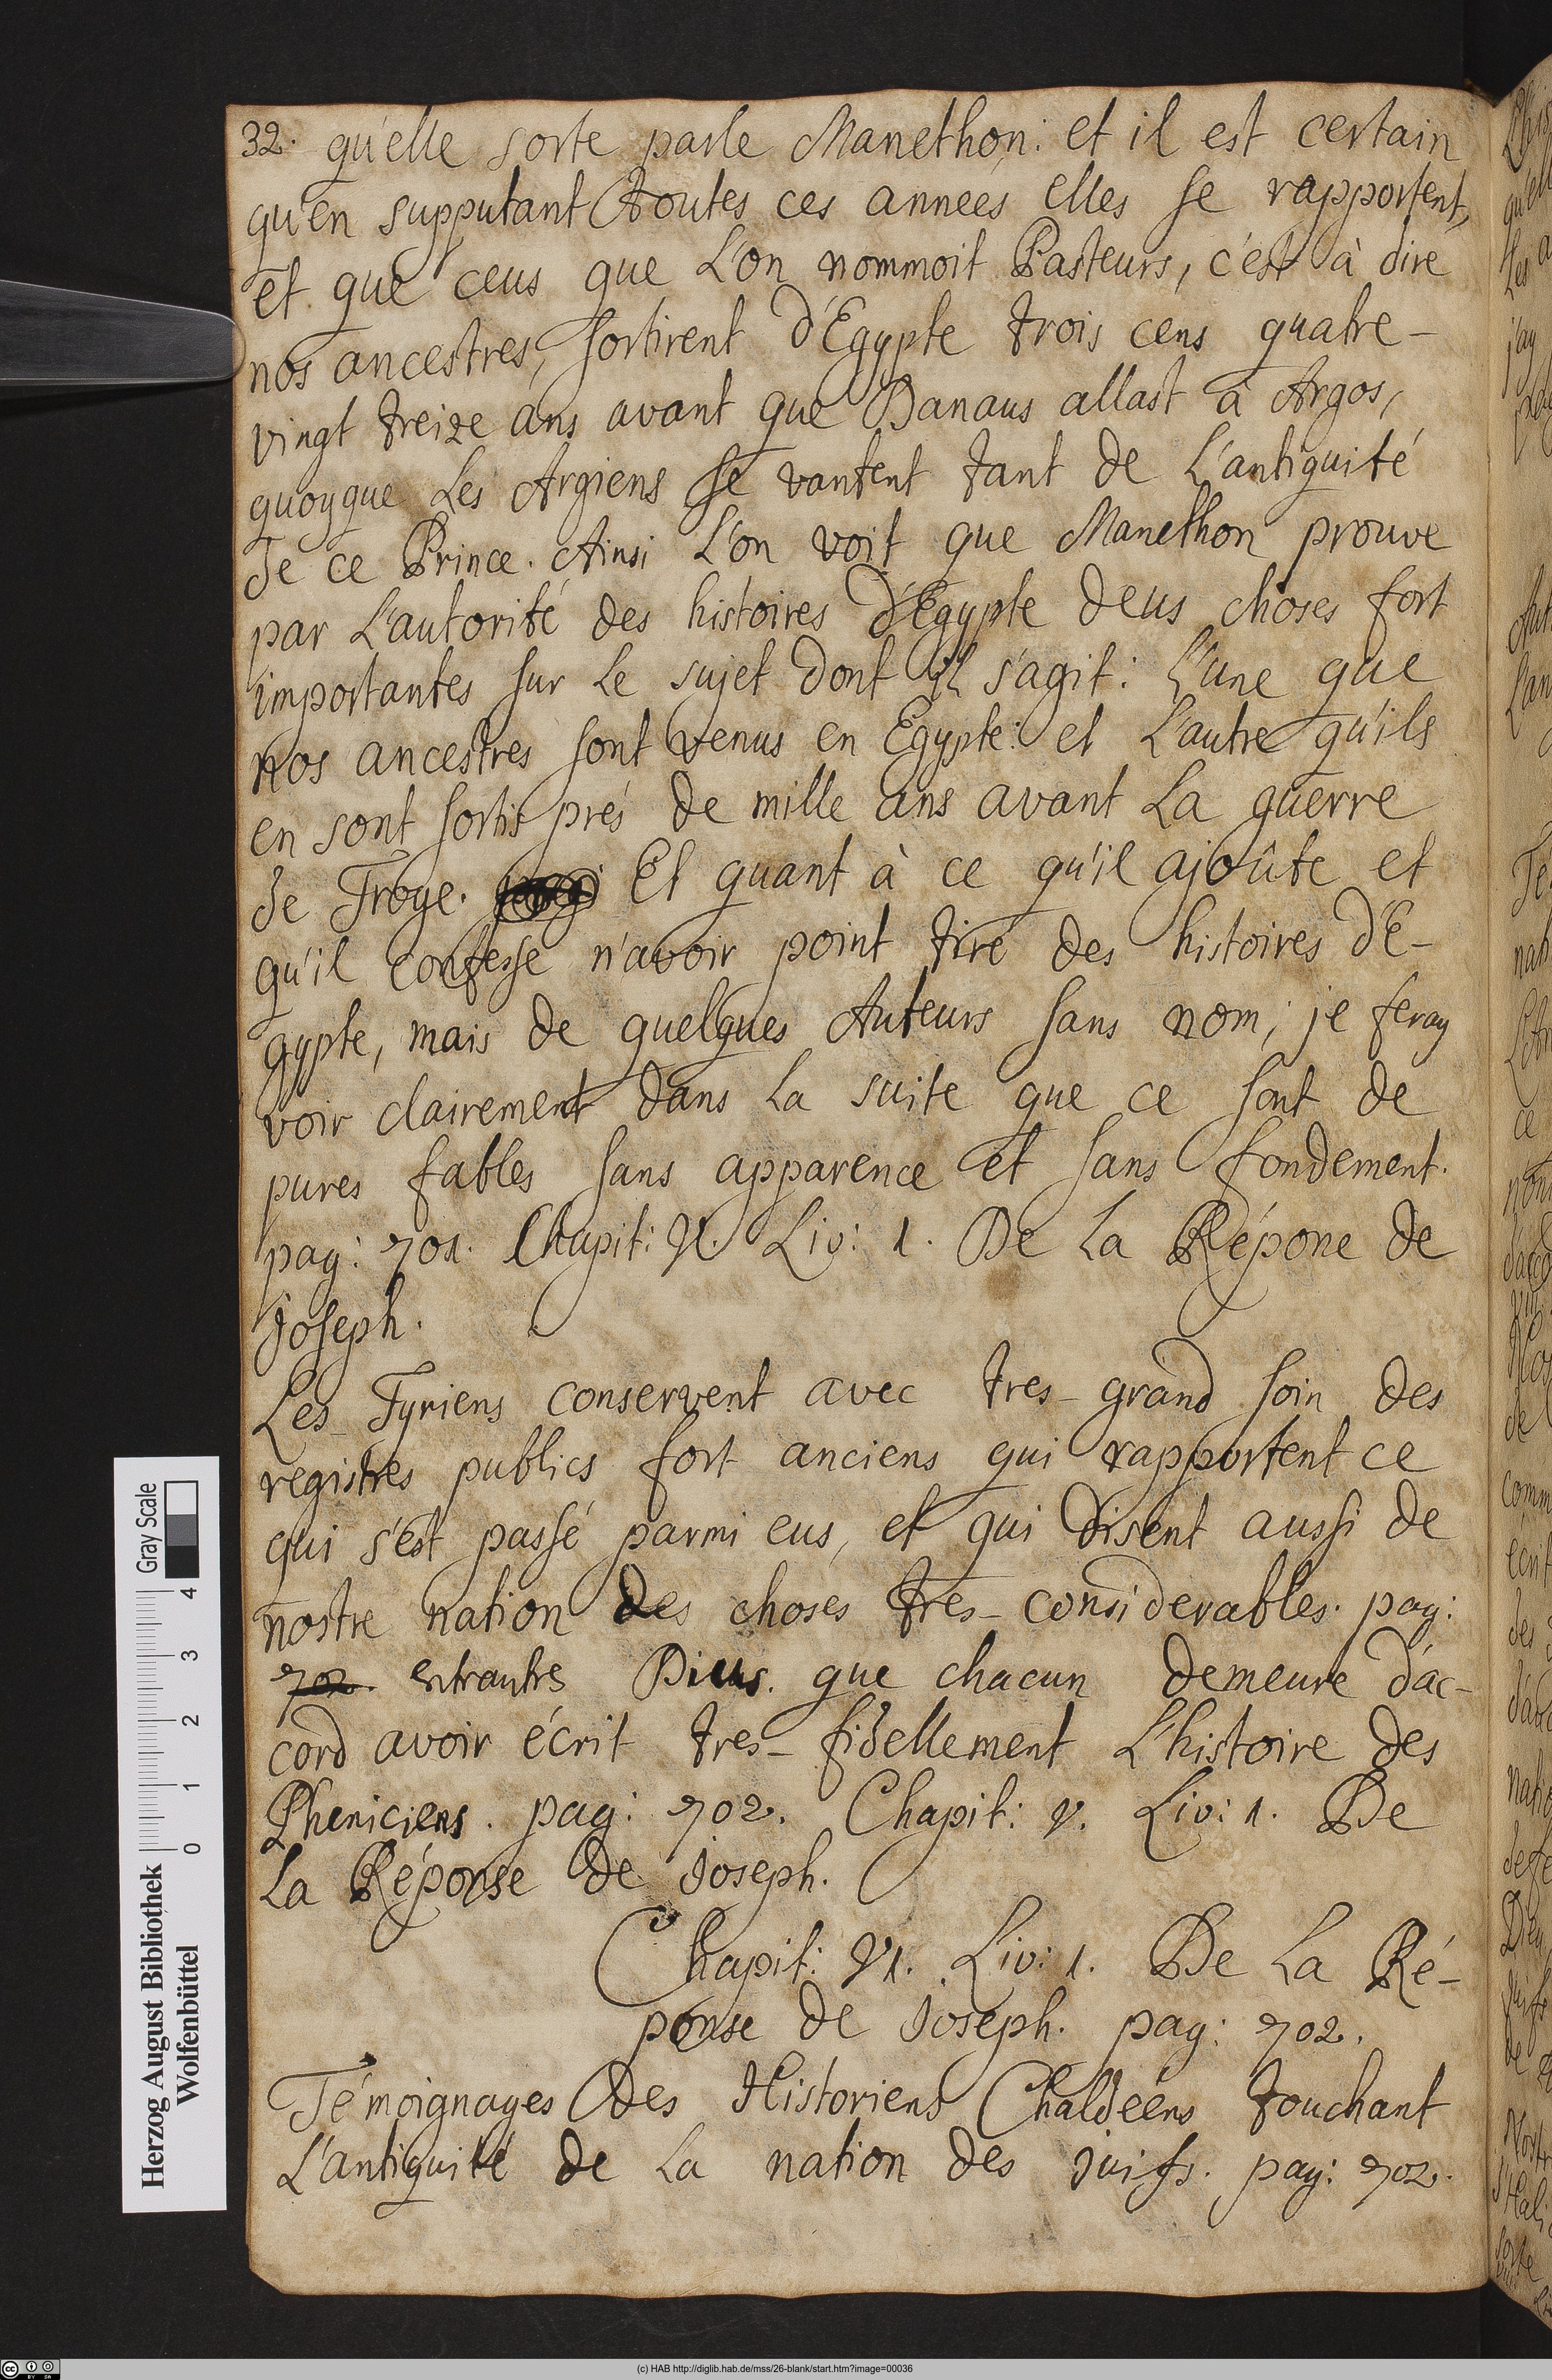 32. qu'elle sorte parle Manethon: et il est certain
qu'en supputant toutes ces années elles se rapportent,
et que ceus que L'on nommoit Pasteurs, c'est à dire
nos ancestres, sortirent d'Egypte trois cens quatre-
vingt treize ans avant que Danaus allast à Argos,
quoyque Les Argiens se vantent tant de L'antiquité
de ce Prince. Ainsi L'on voit que Manethon prouve
par L'autorité des histoires d'Egypte deus choses fort
importantes sur Le sujet dont il s'agit: L'une que
nos ancestres sont venus en Egypte: et L'autre qu'ils
en sont sortis prés de mille ans avant La guerre
de Troye. Et quant à ce qu'il ajoûte et
qu'il confesse n'avoir point tiré des histoires d'E-
gypte, mais de quelques Auteurs sans nom; je feray
voir clairement dans La suite que ce sont de
pures fables sans apparence et sans fondement.
pag: 701. Chapit: V. Liv: 1. De La Répone de
Joseph.
Les Tyriens conservent avec tres-grand soin des
registres publics fort anciens qui rapportent ce
qui s'est passé parmi eus, et qui disent aussi de
nostre nation des choses tres-considerables. pag:
702. entrautre Dius. que chacun demeure d'ac-
cord avoir écrit tres-fidellement L'histoire des
Pheniciens. pag: 702. Chapit: V. Liv: 1. De
La Réponse de Joseph.
Chapit: VI. Liv: 1. De La Ré-
ponse de Joseph. pag: 702.
Témoignages des Historiens Chaldéens touchant
L'antiquité de La nation des Juifs. pag: 702.
Herzog August Bibliothek
Wolfenbüttel
Gray Scale
0 1 2 3 4
(c) HAB http://diglib.hab.de/mss/26-blank/start.htm?image=00036